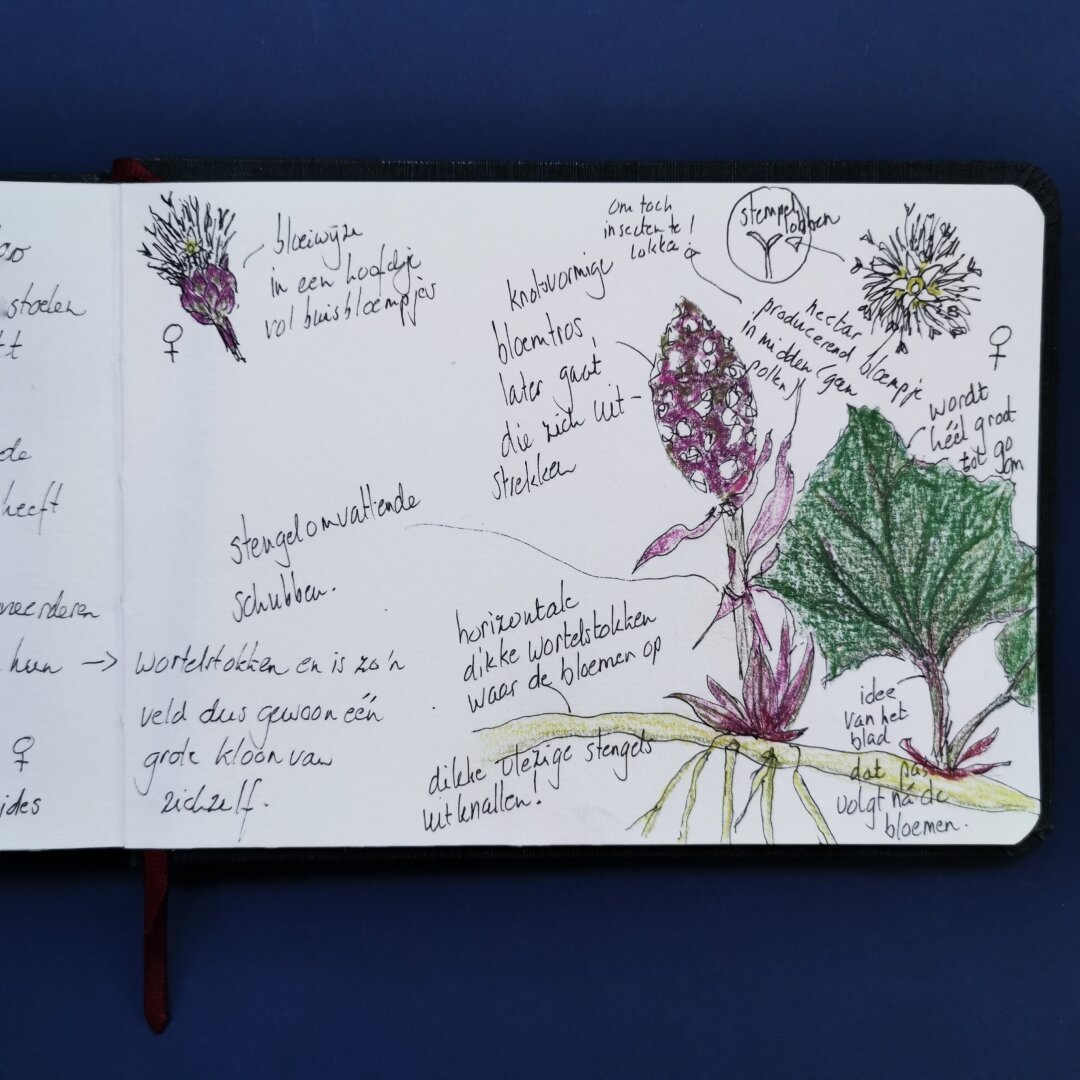 stoelen
de
heeft
hun →
♀
ides
♀
bloeiwijze
in een hoofdje
vol buisbloempjes
knotsvormige
bloemtros,
later gaat
die zich uit-
strekken
om toch
insecten te
lokken
stempel
lobben
nectar
producerend bloempje
in midden (geen
pollen)
♀
wordt
héél groot
tot 90
cm
stengelomvattende
schubben.
wortelstokken en is zo'n
veld dus gewoon één
grote kloon van
zichzelf.
horizontale
dikke wortelstokken
waar de bloemen op
dikke vlezige stengels
uitknallen!
idee
van het
blad
dat pas
volgt ná de
bloemen.